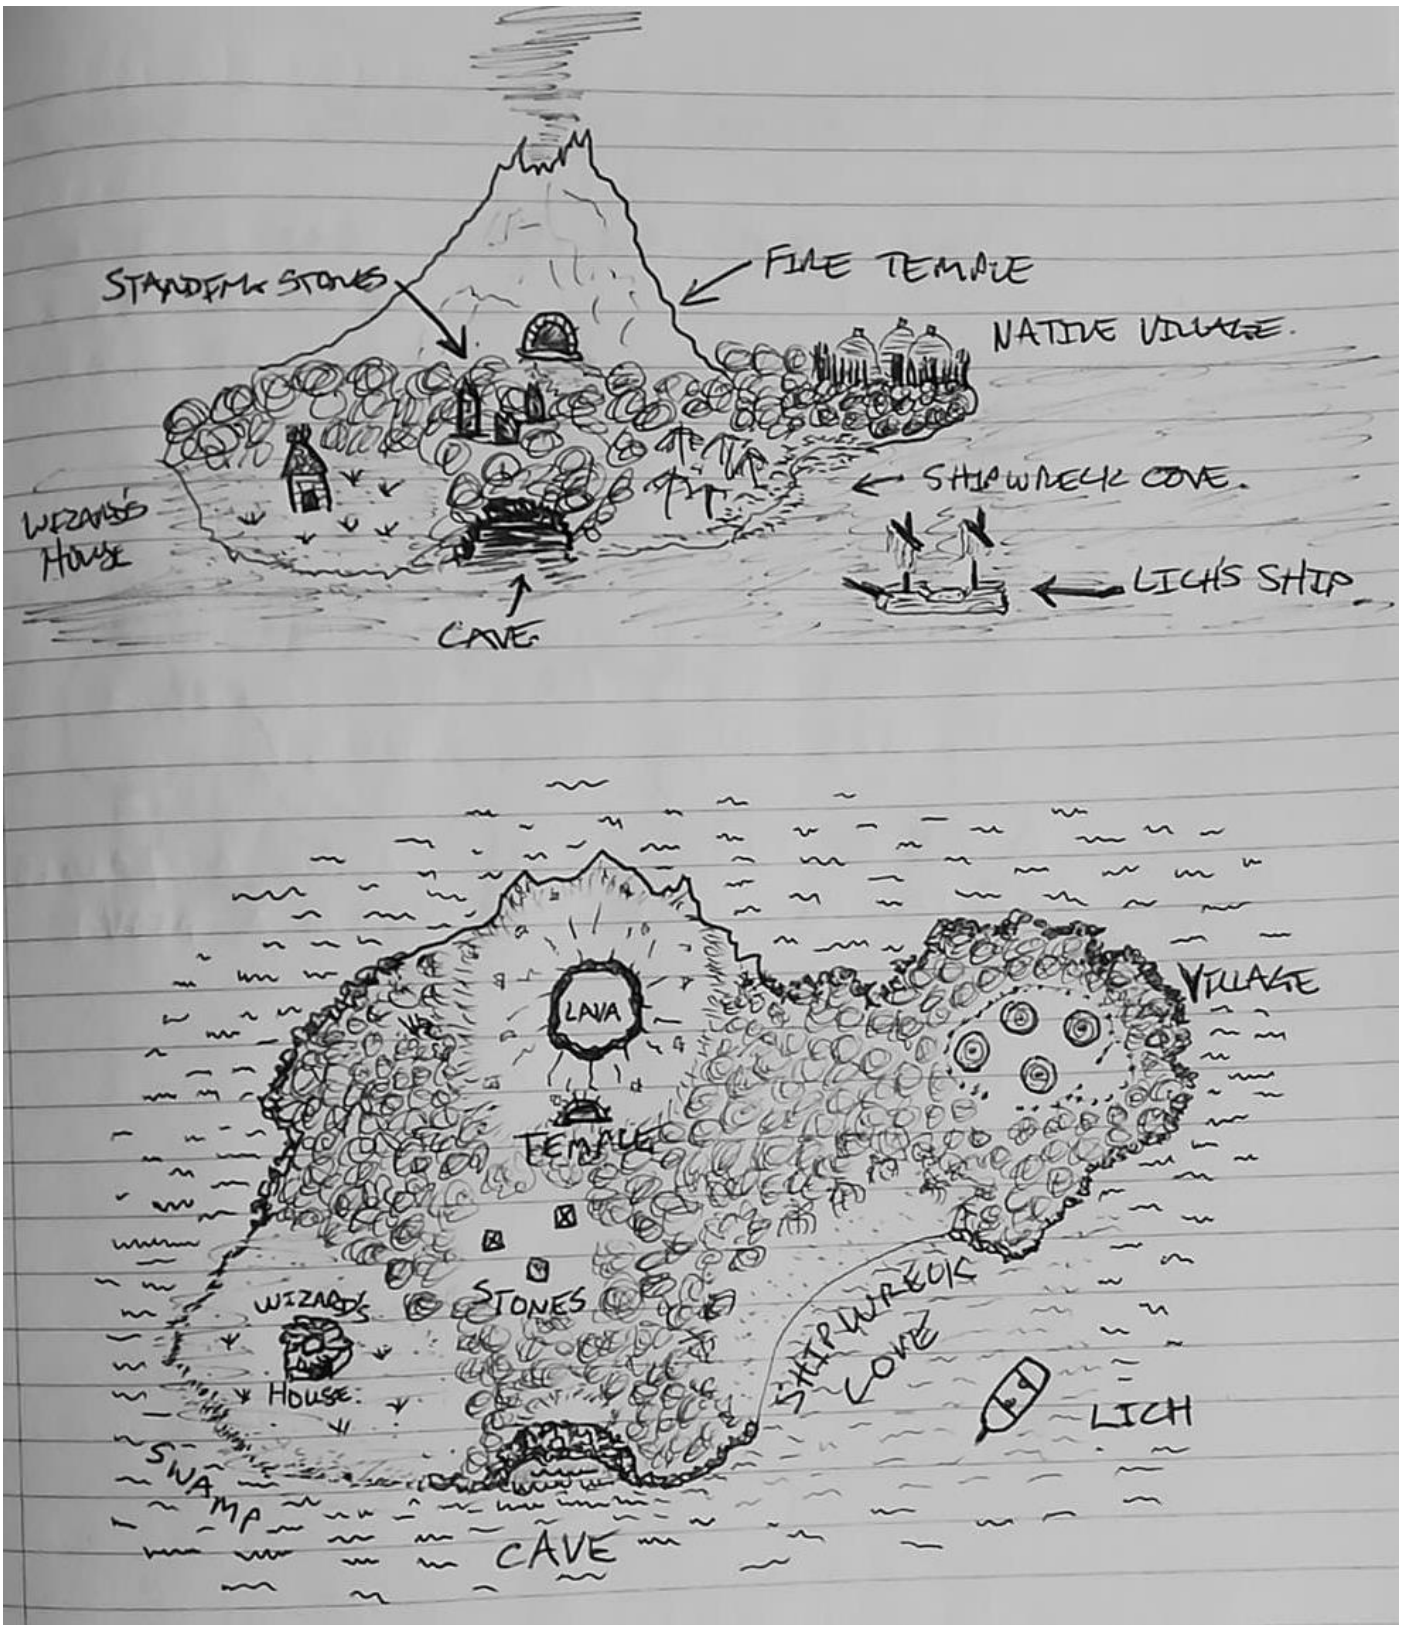 STANDING STONES
FIRE TEMPLE
NATIVE VILLAGE.
WIZARD'S
HOUSE
SHIPWRECK COVE.
LICH'S SHIP
CAVE
VILLAGE
LAVA
TEMPLE
STONES
WIZARD'S
HOUSE.
SHIPWRECK
COVE
LICH
SWAMP
CAVE